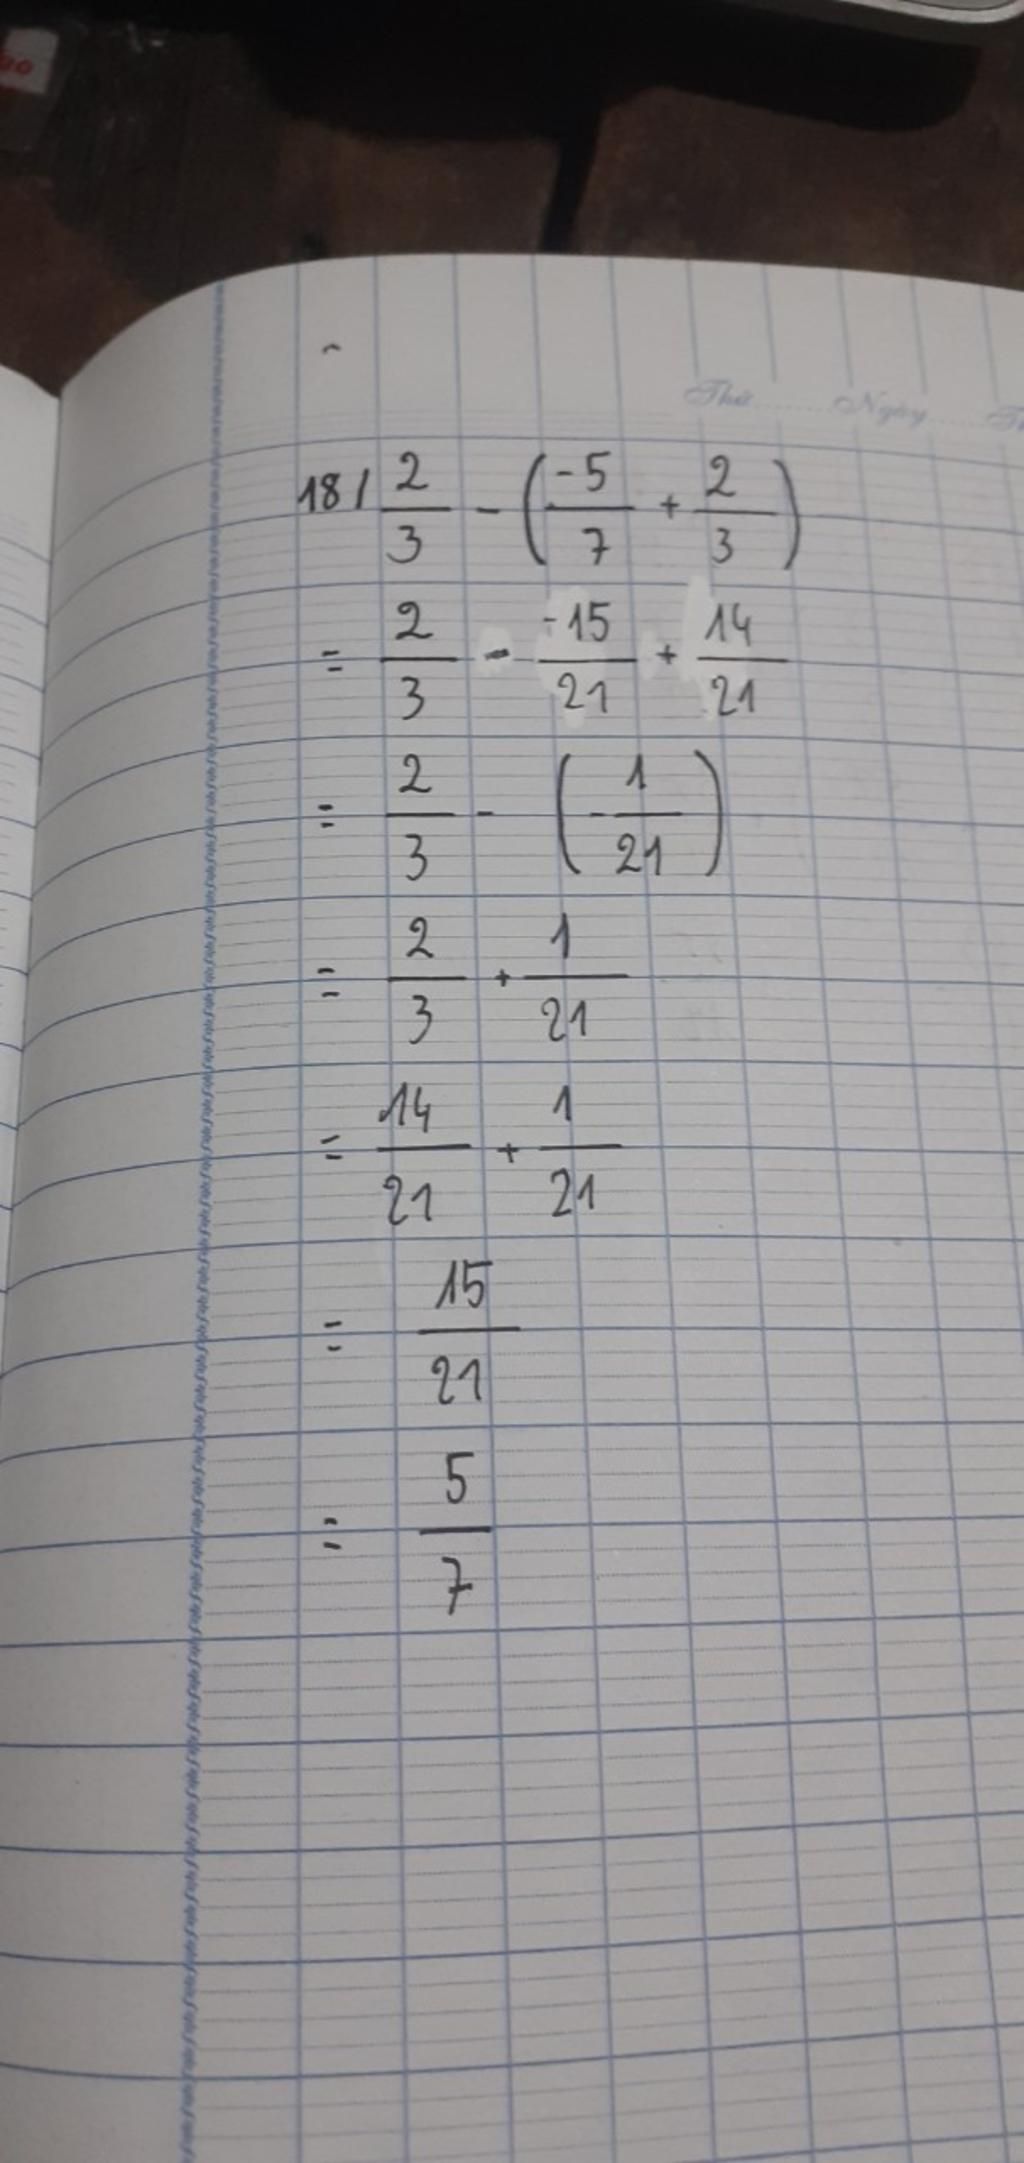 Thứ........Ngày......
18/ 2/3 - (-5/7 + 2/3)
= 2/3 - -15/21 + 14/21
= 2/3 - (-1/21)
= 2/3 + 1/21
= 14/21 + 1/21
= 15/21
= 5/7